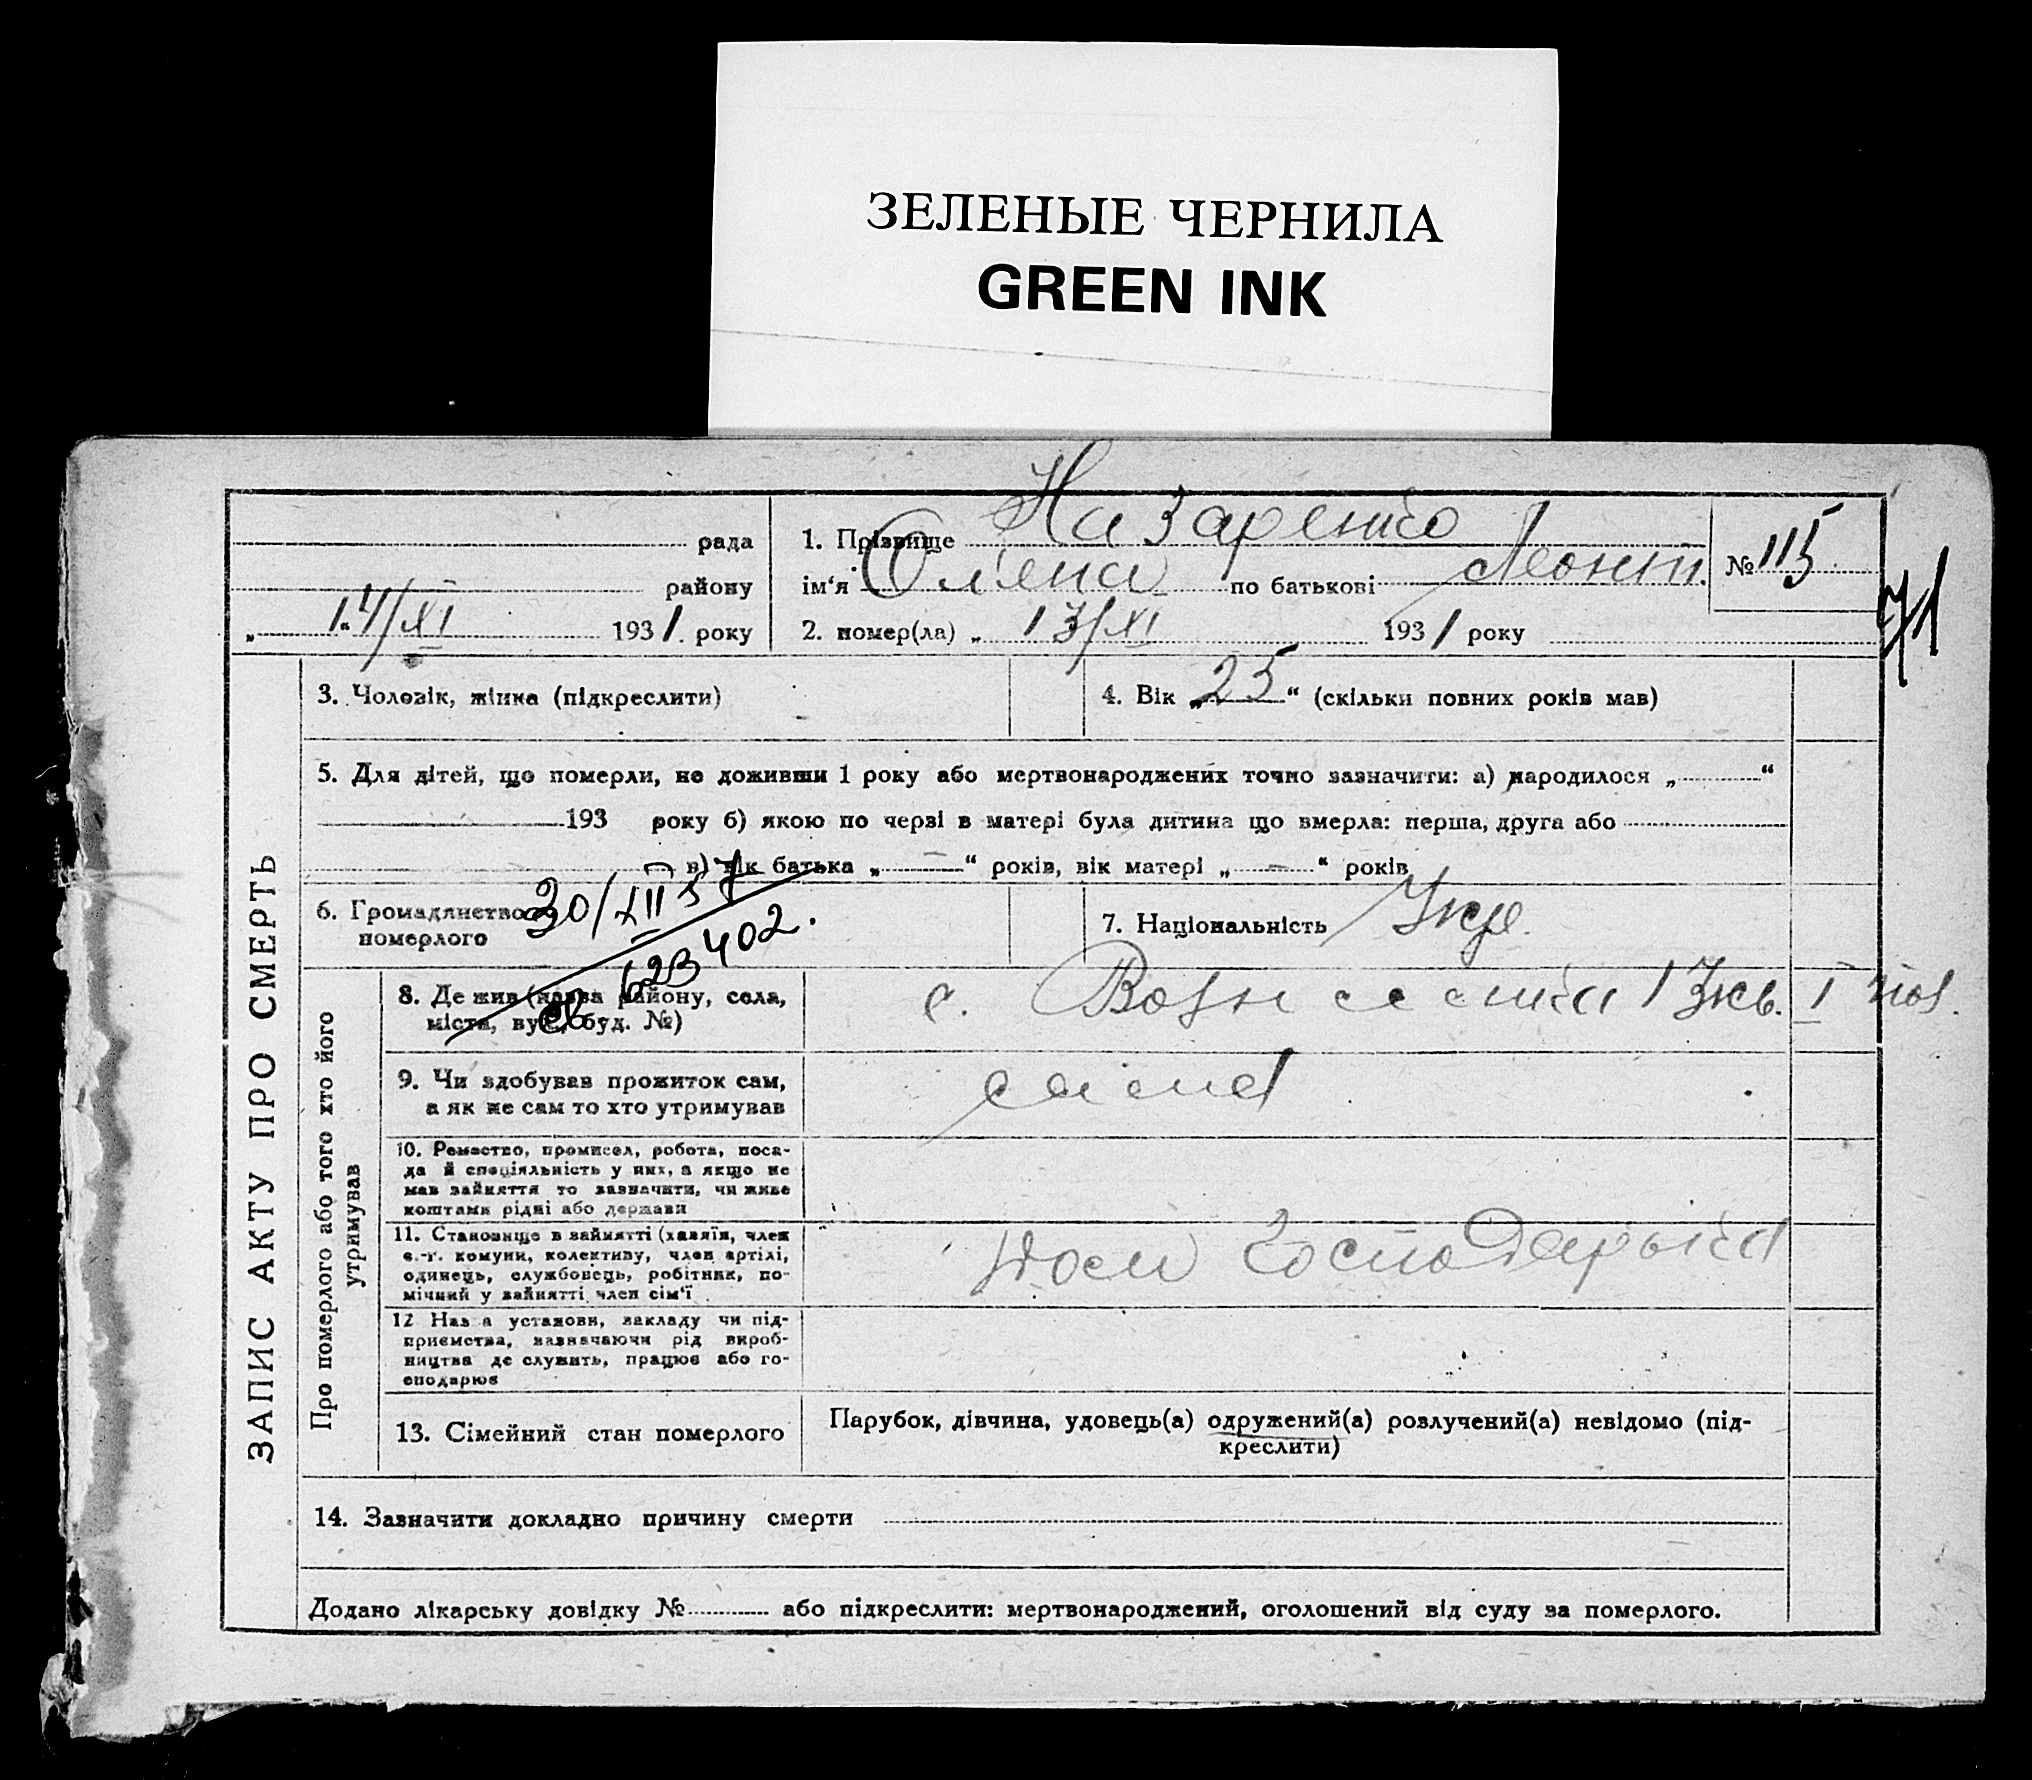 ЗЕЛЕНЫЕ ЧЕРНИЛА
GREEN INK
рада
району
„ 14/XI 1931 року
1. Прізвище Назаренко
ім‘я Олена по батькові Леонт.
2. помер(ла) „ 13/XI 1931 року
№ 115
71
ЗАПИС АКТУ ПРО СМЕРТЬ
3. Чоловік, жінка (підкреслити)
4. Вік „25“ (скільки повних років мав)
5. Для дітей, що померли, не доживши 1 року або мертвонароджених точно зазначити: а) народилося „ “
193 року б) якою по черзі в матері була дитина що вмерла: перша, друга або
в) вік батька „ — “ років, вік матері „ — “ років
6. Громадянство
померлого
30/XII 57
св 623402.
7. Національність Укр.
Про померлого або того хто його
утримував
8. Де жив (назва району, села,
міста, вул., буд. №)
с. Вознесенка 13кв. I
9. Чи здобував прожиток сам,
а як не сам то хто утримував
сама
10. Ремество, промисел, робота, поса-
да й спеціяльність у них, а якщо не
мав зайняття то зазначити, чи живе
коштами рідні або держави
11. Становище в зайнятті (хазяїн, член
с.-г. комуни, колективу, член артілі,
одинець, службовець, робітник, по-
мічний у зайнятті член сім‘ї
Дом Господарька
12 Назва установи, закладу чи під-
приємства, назначаючи рід вироб-
ництва де служить, працює або го-
сподарює
13. Сімейний стан померлого
Парубок, дівчина, удовець(а) одружений(а) розлучений(а) невідомо (під-
креслити)
14. Зазначити докладно причину смерти
Додано лікарську довідку № або підкреслити: мертвонароджений, оголошений від суду за померлого.